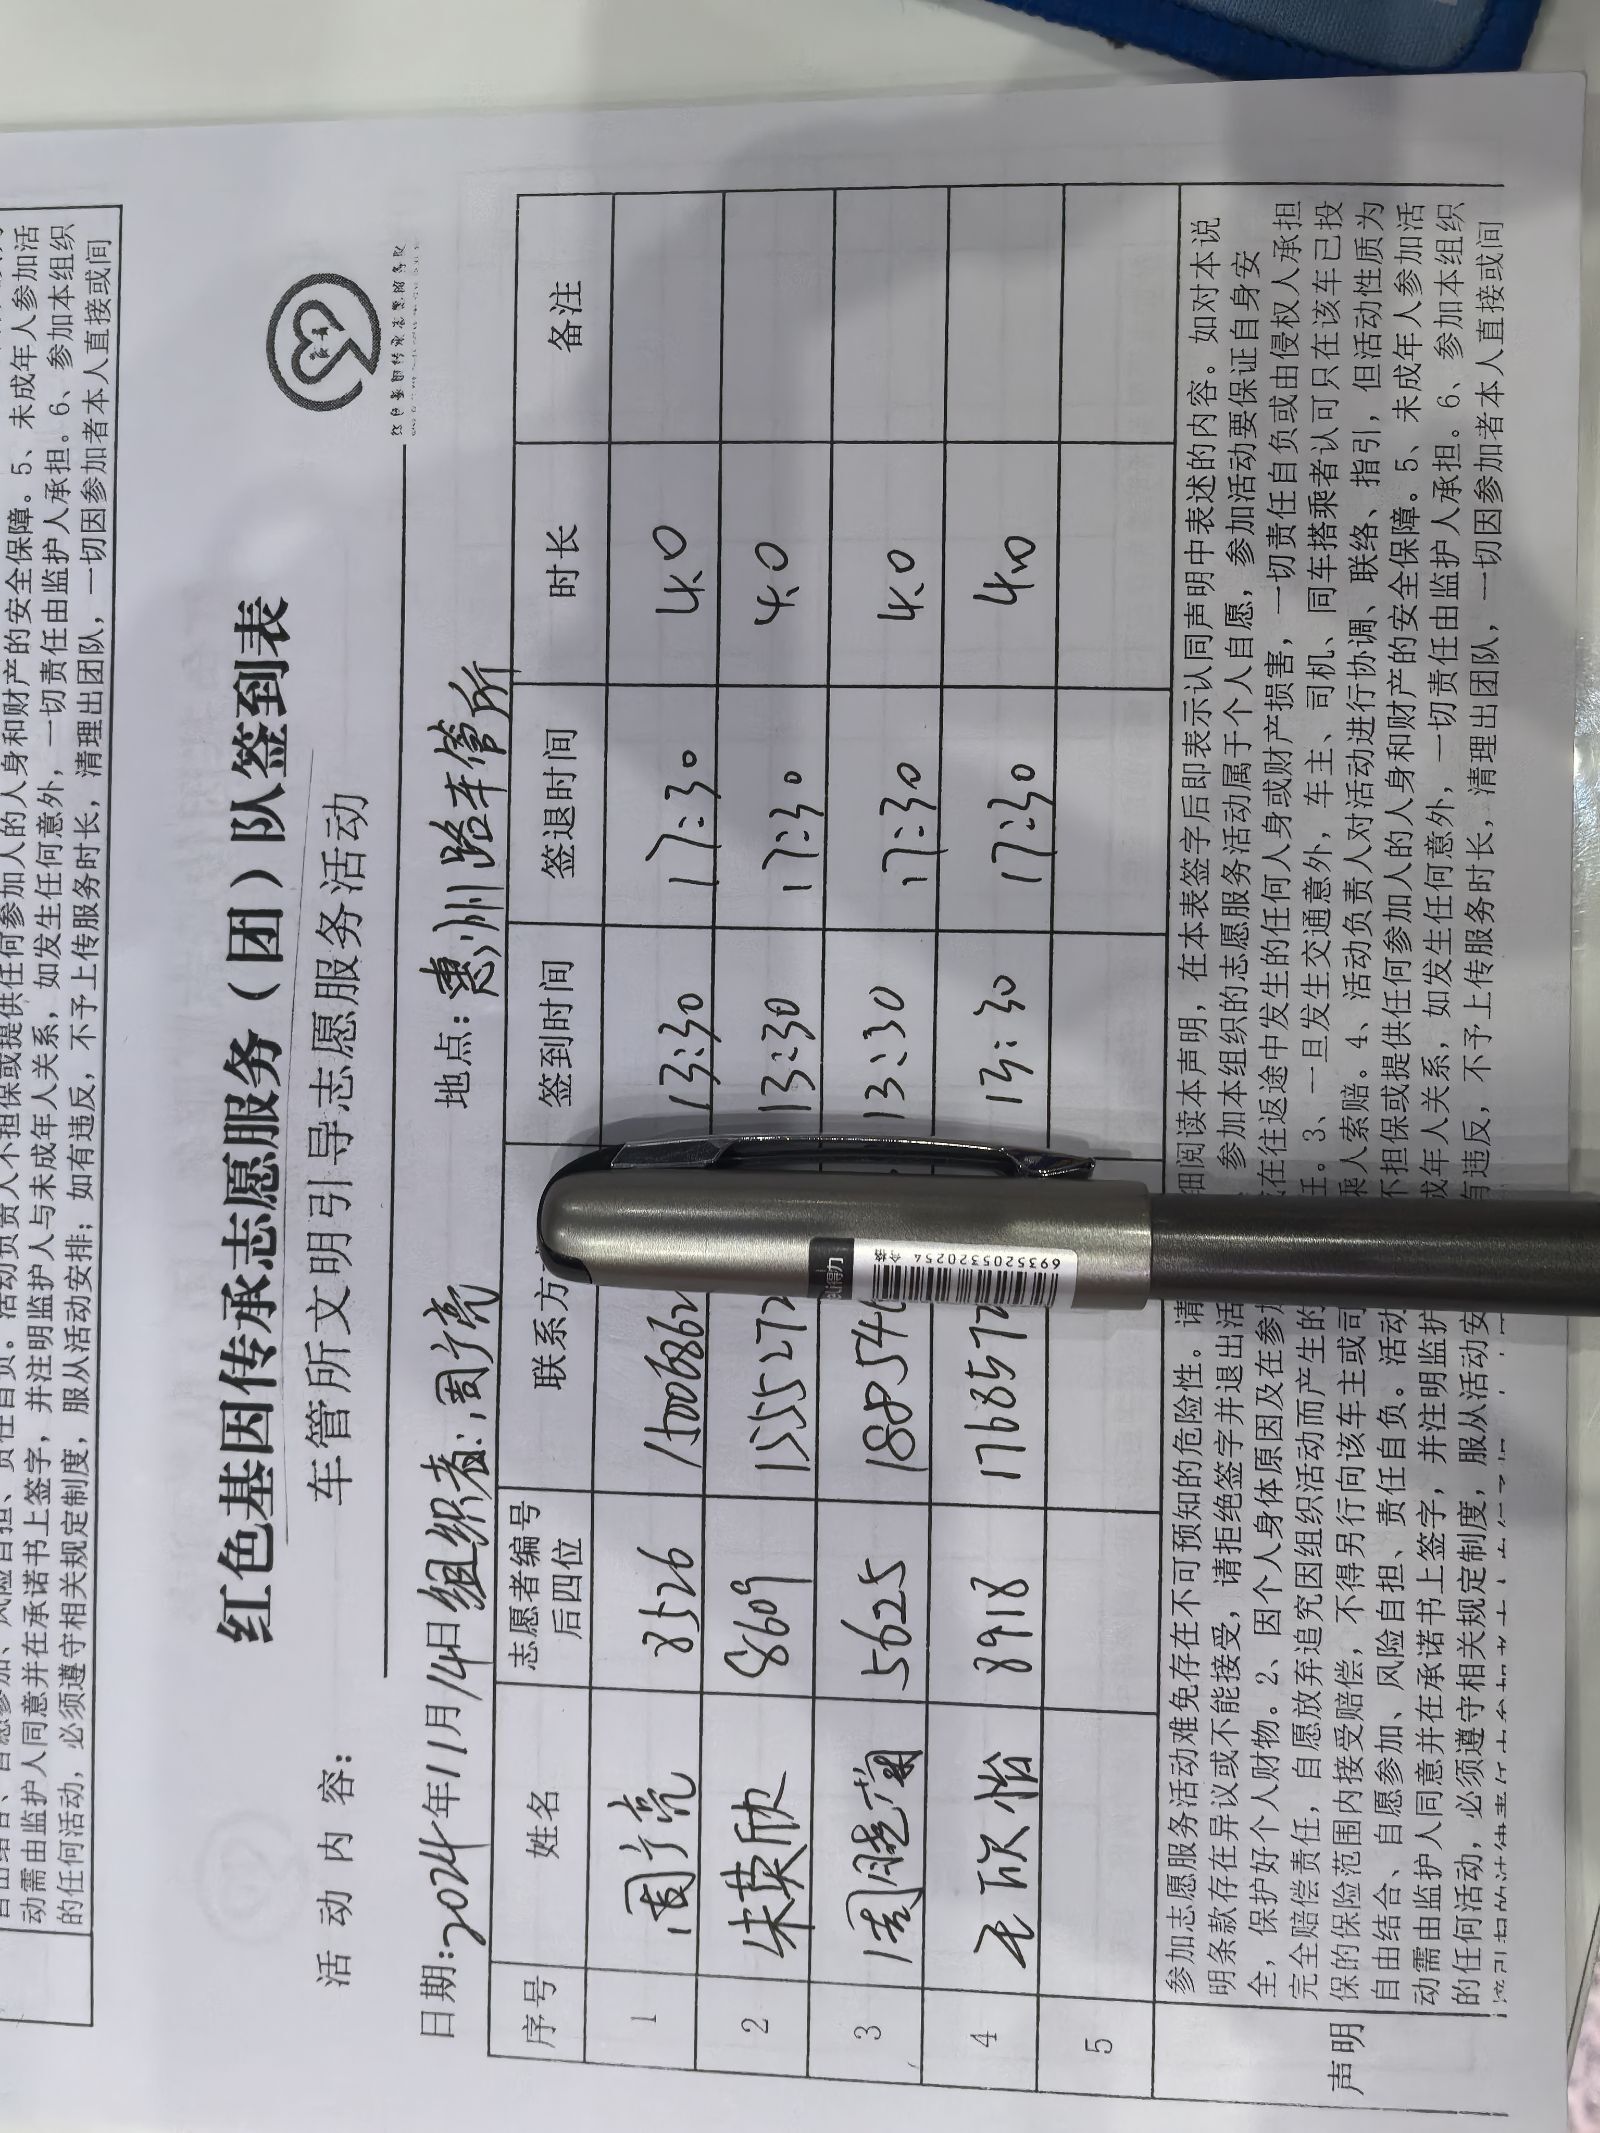 动需由监护人同意并在承诺书上签字，并注明监护人与未成年人关系，如发生任何意外，一切责任由监护人承担。6、参加本组织
的任何活动，必须遵守相关规定制度，服从活动安排；如有违反，不予上传服务时长，清理出团队，一切因参加者本人直接或间
红色基因传承志愿服务（团）队签到表
活动内容：车管所文明引导志愿服务活动
日期:2024年11月14日组织者:周广亮 地点:惠州路车管所
序号 姓名 志愿者编号后四位 联系方 签到时间 签退时间 时长 备注
1 周广亮 8526 1500862 13:30 17:30 4.0
2 朱英欣 8609 155527 13:30 17:30 4.0
3 周晓菊 5625 188546 13:30 17:30 4.0
4 王欣怡 8918 1768572 13:30 17:30 4.0
5
声明
参加志愿服务活动难免存在不可预知的危险性。请 细阅读本声明，在本表签字后即表示认同声明中表述的内容。如对本说
明条款存在异议或不能接受，请拒绝签字并退出活 参加本组织的志愿服务活动属于个人自愿，参加活动要保证自身安
全，保护好个人财物。2、因个人身体原因及在参加 在往返途中发生的任何人身或财产损害，一切责任自负或由侵权人承担
完全赔偿责任，自愿放弃追究因组织活动而产生的 任。3、一旦发生交通意外，车主、司机、同车搭乘者认可只在该车已投
保的保险范围内接受赔偿，不得另行向该车主或司 乘人索赔。4、活动负责人对活动进行协调、联络、指引，但活动性质为
自由结合、自愿参加、风险自担、责任自负。活动 不担保或提供任何参加人的人身和财产的安全保障。5、未成年人参加活
动需由监护人同意并在承诺书上签字，并注明监护 成年人关系，如发生任何意外，一切责任由监护人承担。6、参加本组织
的任何活动，必须遵守相关规定制度，服从活动安 有违反，不予上传服务时长，清理出团队，一切因参加者本人直接或间
得力
6935205320254